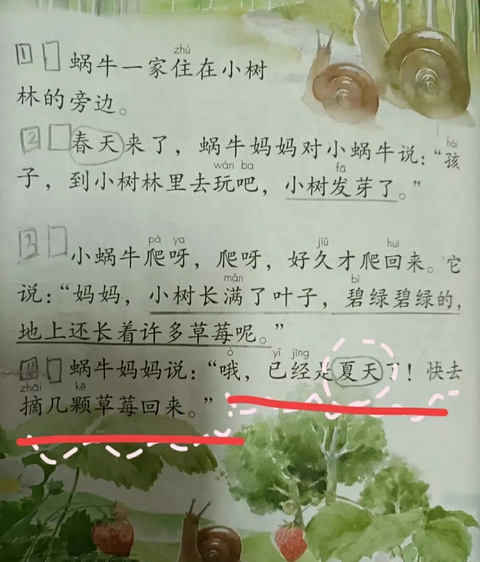 1 zhù
蜗牛一家住在小树
林的旁边。
2 春天来了，蜗牛妈妈对小蜗牛说：“孩
hái
wán ba fā
子，到小树林里去玩吧，小树发芽了。”
3 pá ya jiǔ huí
小蜗牛爬呀，爬呀，好久才爬回来。它
mǎn bì
说：“妈妈，小树长满了叶子，碧绿碧绿的，
地上还长着许多草莓呢。”
ò yǐ jīng
4 蜗牛妈妈说：“哦，已经是夏天了！快去
zhāi kē
摘几颗草莓回来。”